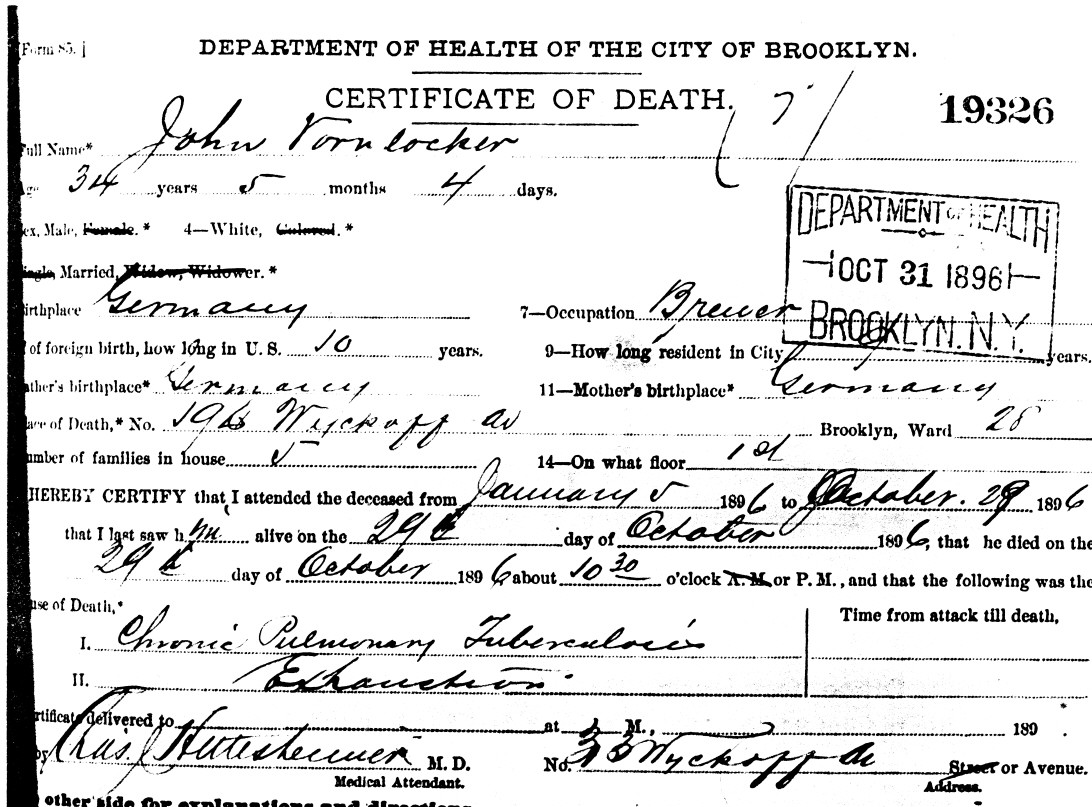 [Form 85.]
DEPARTMENT OF HEALTH OF THE CITY OF BROOKLYN.
CERTIFICATE OF DEATH.
19326
Full Name* John Vornlocker
Age 34 years 5 months 4 days.
ex, Male, Female.* 4—White, Colored.*
ingle, Married, Widow, Widower.*
DEPARTMENT OF HEALTH
OCT 31 1896
BROOKLYN. N.Y.
irthplace Germany 7—Occupation Brewer
of foreign birth, how long in U. S. 10 years. 9—How long resident in City years.
ather's birthplace* Germany 11—Mother's birthplace* Germany
ace of Death,* No. Wyckoff av Brooklyn, Ward 28
umber of families in house 5 14—On what floor 1st
HEREBY CERTIFY that I attended the deceased from January 5 1896 to October. 29 1896
that I last saw him alive on the 29th day of October 1896, that he died on the
29th day of October 1896 about 10 30 o'clock A. M. or P. M., and that the following was the
use of Death,* Time from attack till death,
I. Chronic Pulmonary Tuberculosis
II. Exhaustion
ertificate delivered to at M., 189
by Chas. M. D. No. 33 Wyckoff Av Street or Avenue.
Medical Attendant. Address.
other side for explanations and directions